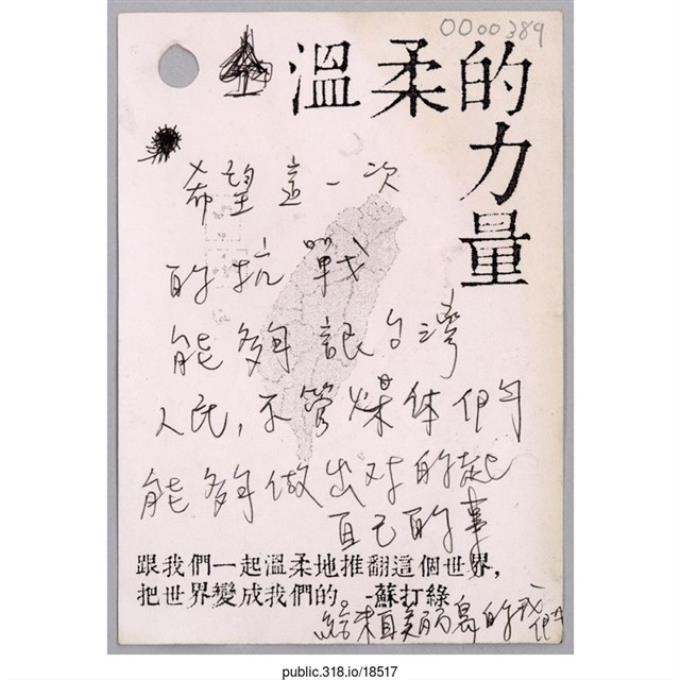 0000389
溫柔的
力量
希望這一次
的抗戰
能夠讓台灣
人民,不管媒体們
能夠做出对的起
自己的事
跟我們一起溫柔地推翻這個世界,
把世界變成我們的。-蘇打綠
給 美麗島的我們
public.318.io/18517